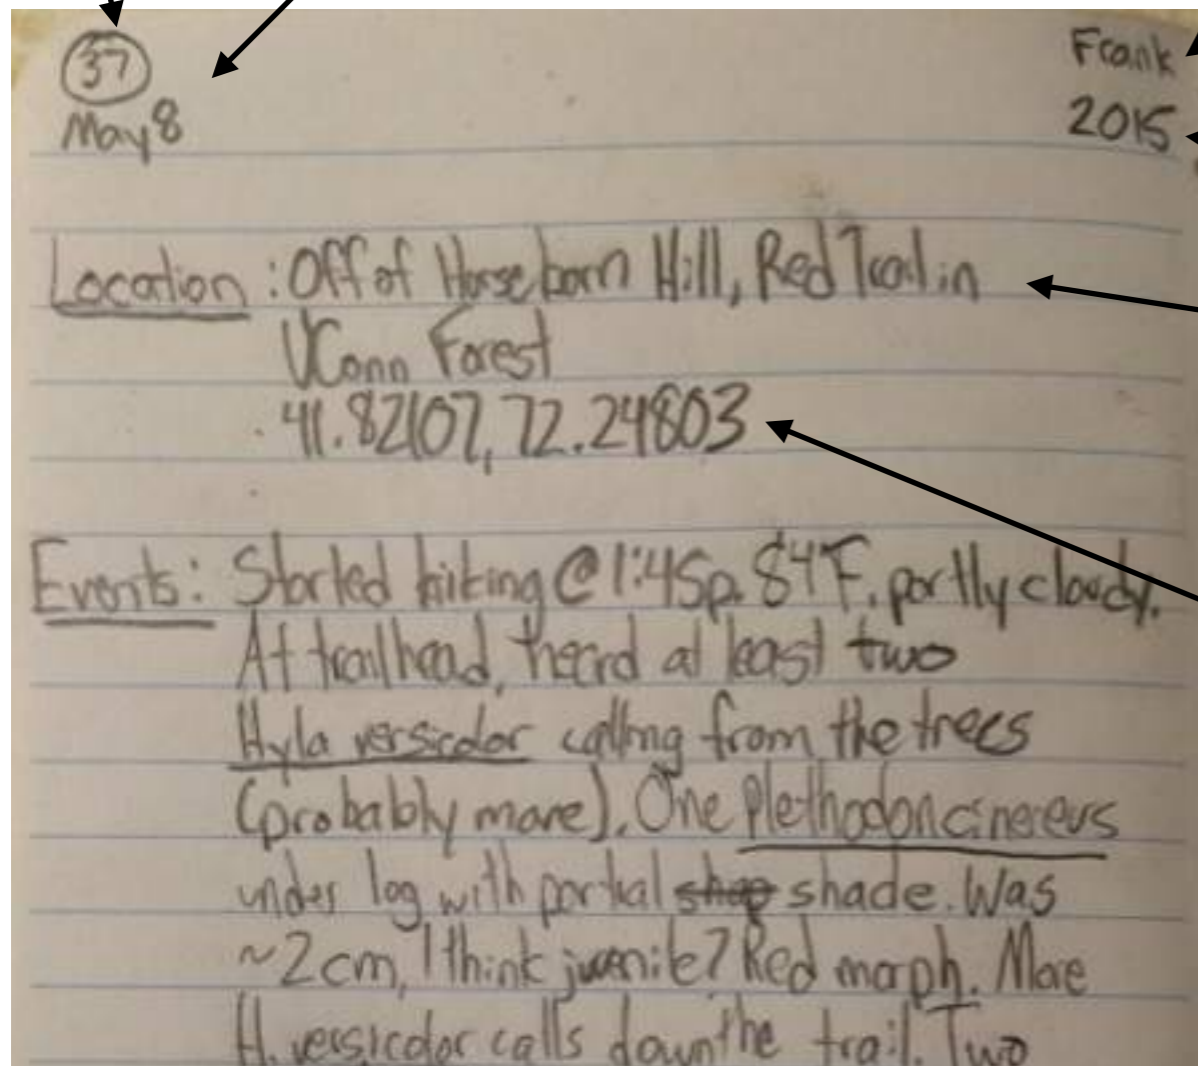 37
May 8
Frank
2015
Location: Off of Horsebarn Hill, Red Trail in
UConn Forest
41.82107, 72.24803
Events: Started hiking @ 1:45p. 84°F, partly cloudy.
At trailhead, heard at least two
Hyla versicolor calling from the trees
(probably more). One Plethodon cinereus
under log with partial shap shade. Was
~2cm, I think juvenile? Red morph. More
H. versicolor calls down the trail. Two